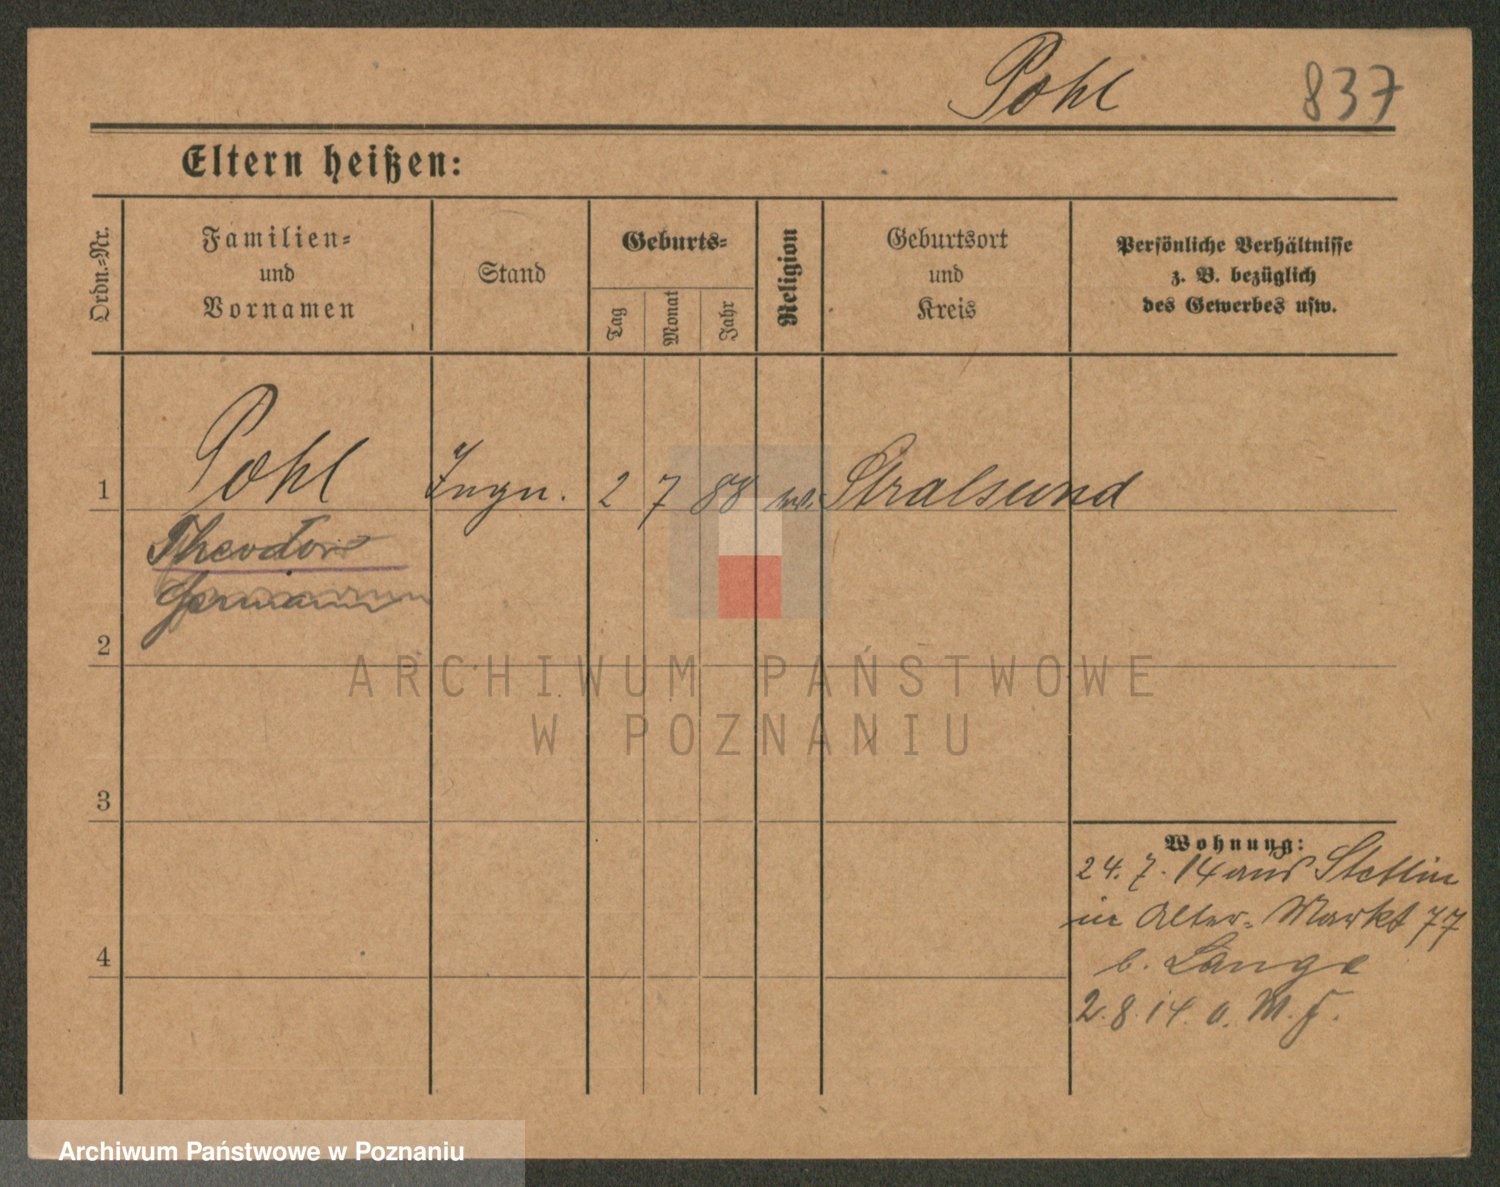 Pohl 837
Eltern heißen:
Ordn.-Nr.
Familien-
und
Vornamen
Stand
Geburts-
Tag
Monat
Jahr
Religion
Geburtsort
und
Kreis
Persönliche Verhältnisse
z. B. bezüglich
des Gewerbes usw.
1 Pohl Ingn. 2 7 88 Stralsund
Theodor
Hermann
2
ARCHIWUM PAŃSTWOWE
W POZNANIU
3
Wohnung:
24.7.14 aus Stettin
in Alter-Markt 77
4
b. Lange
2.8.14. o. M. f.
Archiwum Państwowe w Poznaniu